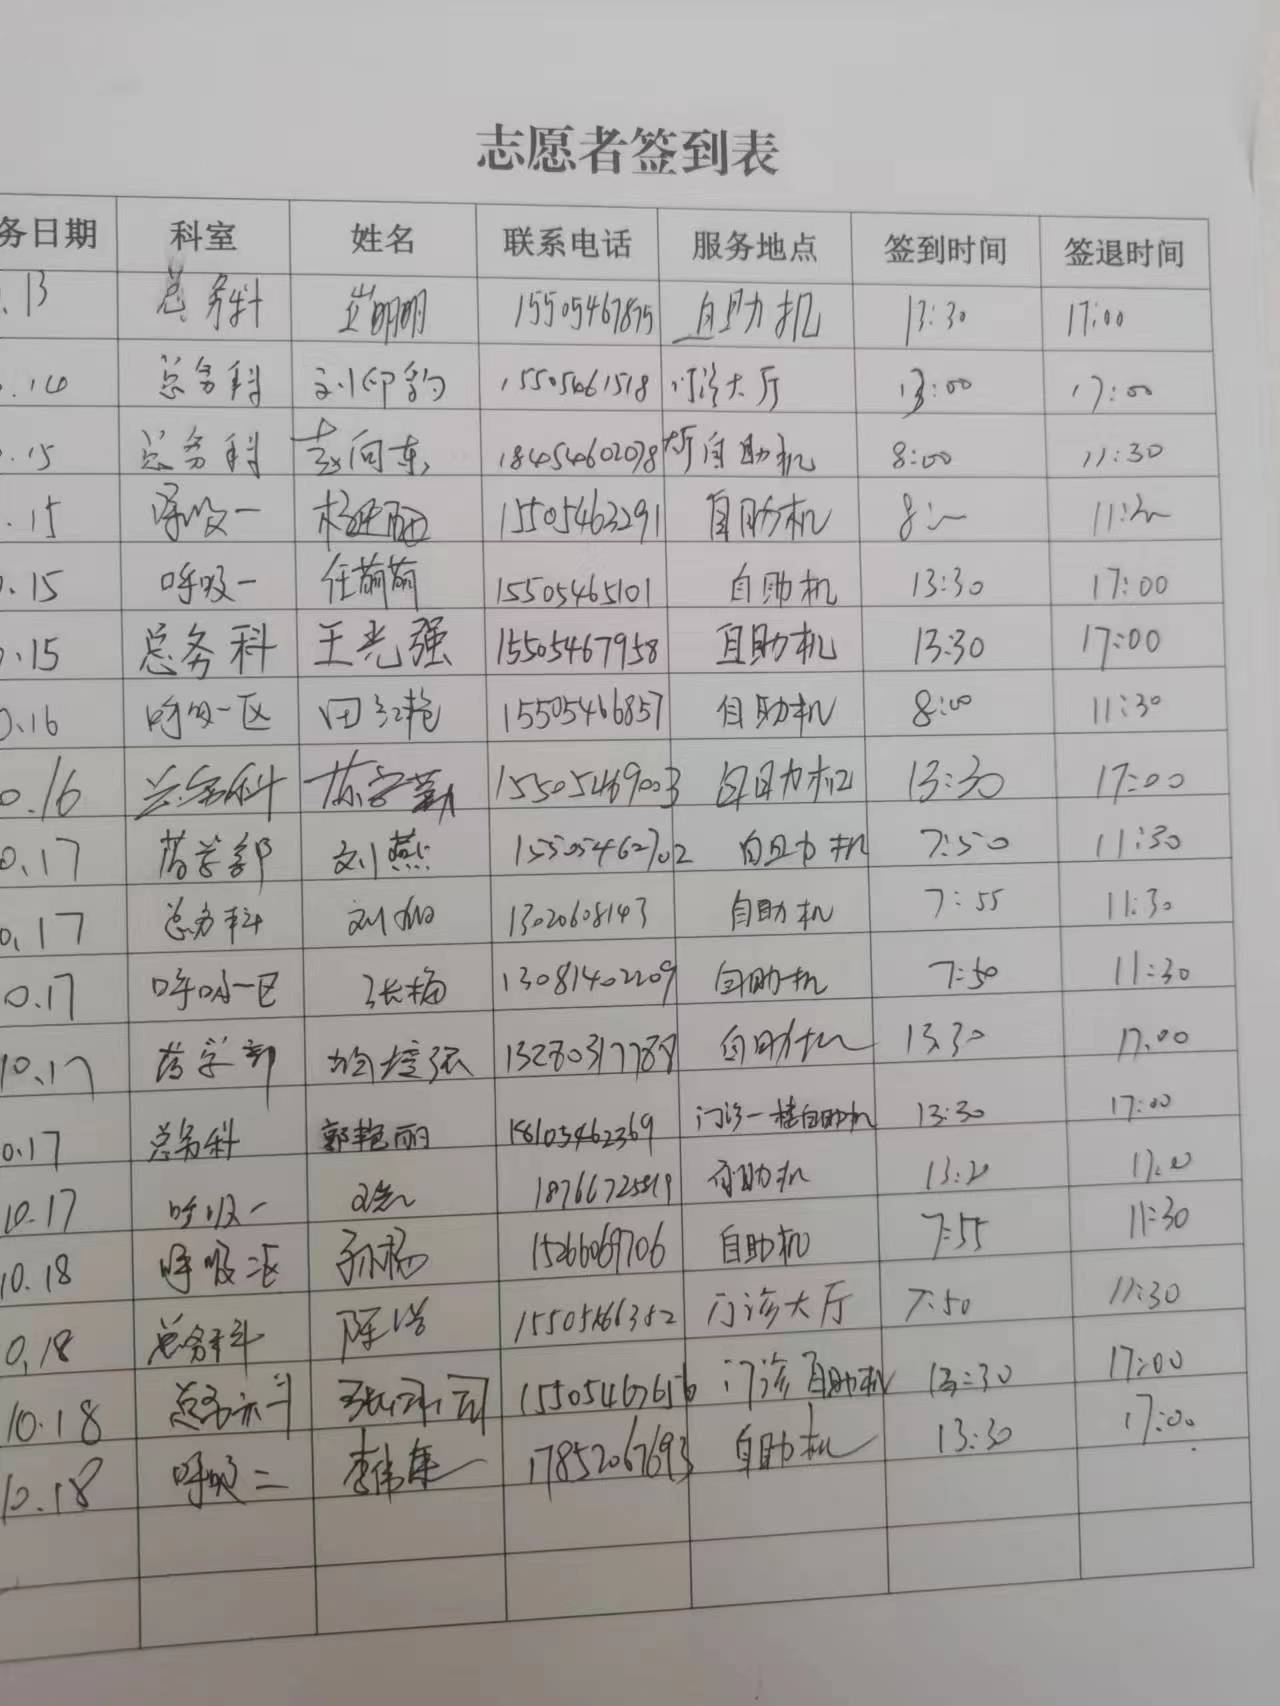 志愿者签到表
务日期 科室 姓名 联系电话 服务地点 签到时间 签退时间
.13 总务科 崔明明 15505467875 自助机 13:30 17:00
.14 总务科 刘仰豹 15505461518 门诊大厅 13:00 17:00
.15 总务科 赵向东 18454602078 大厅自助机 8:00 11:30
.15 呼吸一 15505463291 自助机 8:00 11:30
0.15 呼吸一 任萌萌 15505465101 自助机 13:30 17:00
0.15 总务科 王光强 15505467958 自助机 13:30 17:00
0.16 呼吸一区 田红艳 15505466857 自助机 8:00 11:30
0.16 总务科 15505469003 自助机 13:30 17:00
0.17 药学部 刘燕 15505462702 自助机 7:50 11:30
0.17 总务科 1302608143 自助机 7:55 11:30
0.17 呼吸一区 张梅 13081402209 自助机 7:50 11:30
10.17 药学部 自助机 13:30 17:00
0.17 总务科 郭艳丽 18105462369 门诊一楼自助机 13:30 17:00
10.17 呼吸一 自助机 17:00
10.18 呼吸二区 孙杨 15266069706 自助机 7:55 11:30
0.18 总务科 陈浩 15505466352 门诊大厅 7:50 11:30
10.18 总务科 15505467656 门诊自助机 13:30 17:00
10.18 呼吸二 17852067693 自助机 13:30 17:00